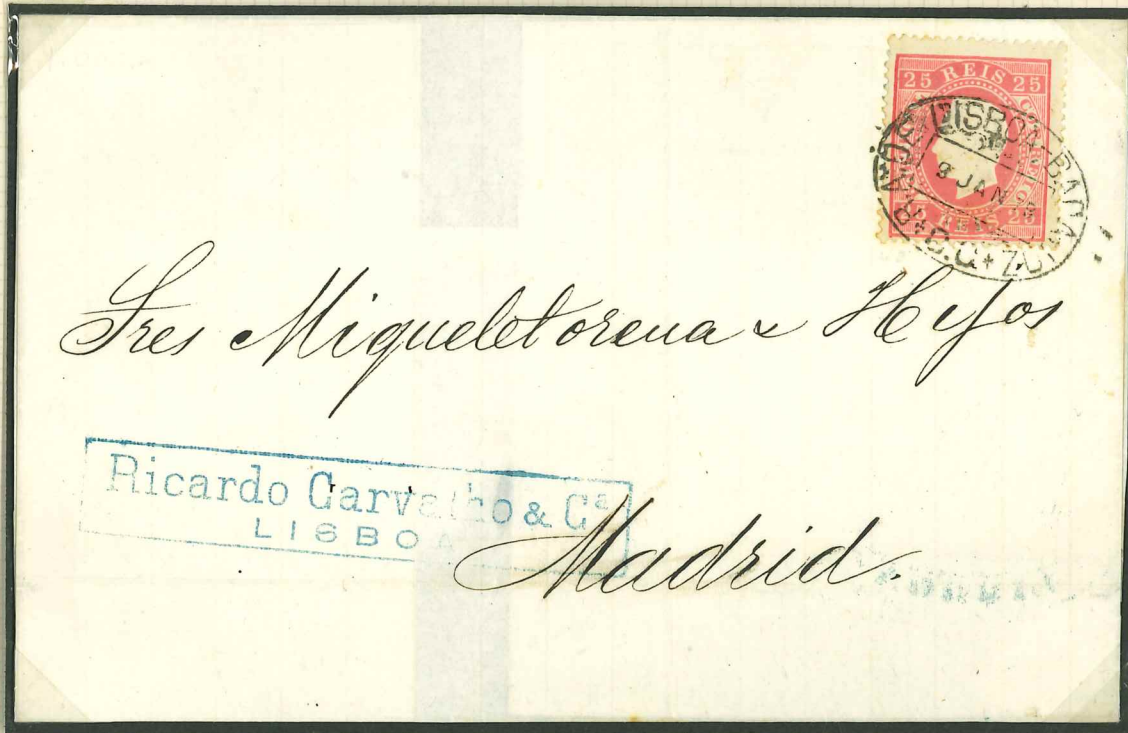 25 REIS 25
9 JAN
25 REIS 25
Sres Migueletorena & Hijos
Ricardo Carvalho & Cª
LISBOA
Madrid.